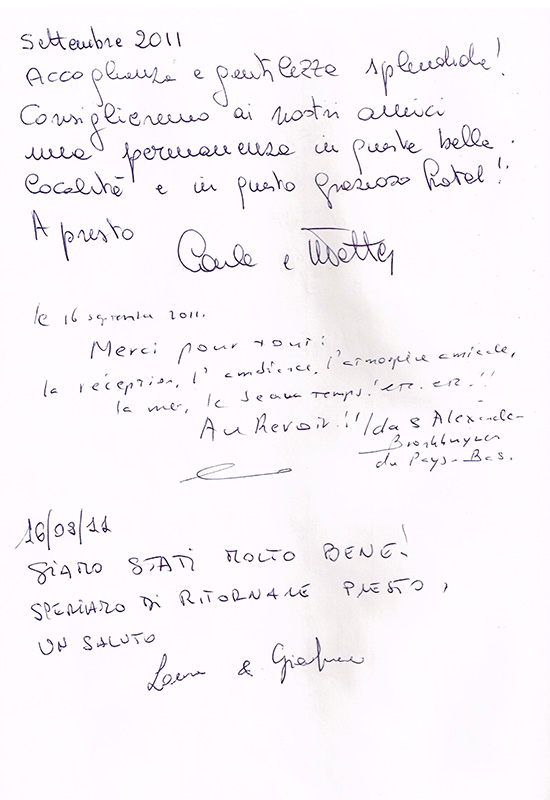 Settembre 2011
Accoglienza e gentilezza splendida!
Consiglieremo ai nostri amici
una permanenza in queste belle
località e in questo grazioso hotel!!
A presto
Carla e
le 16 septembre 2011.
Merci pour tout:
la réception, l'ambiance, l'atmosfère amicale,
la mer, le beau temps! etc. etc.!!
Au Revoir!! Ida &
du Pays-Bas.
16/09/11
SIAMO STATI MOLTO BENE!
SPERIAMO DI RITORNARE PRESTO,
UN SALUTO
Laura &